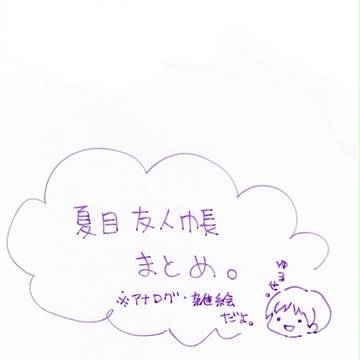 夏目友人帳
まとめ。
※アナログ・雑絵
だよ。
ゆるせ。